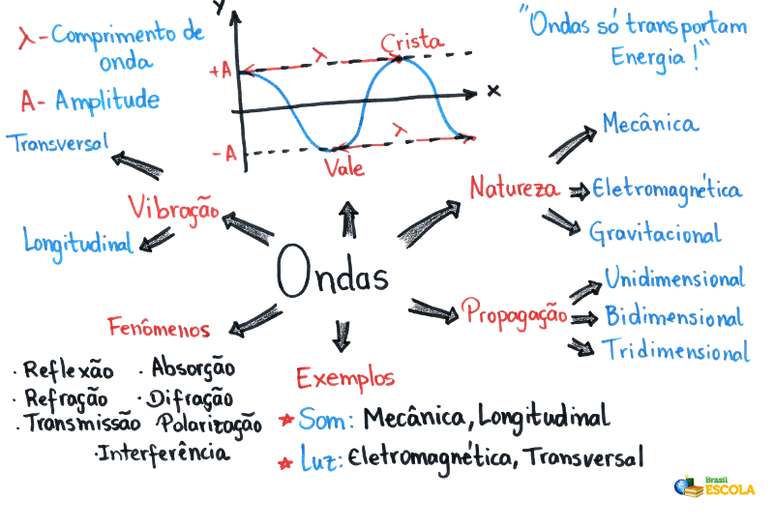 λ - Comprimento de
onda
A - Amplitude
y
+A
-A
λ
Crista
x
λ
Vale
"Ondas só transportam
Energia!"
Transversal
Vibração
Longitudinal
Natureza
Mecânica
Eletromagnética
Gravitacional
Ondas
Propagação
Unidimensional
Bidimensional
Tridimensional
Fenômenos
· Reflexão · Absorção
· Refração · Difração
· Transmissão Polarização
· Interferência
Exemplos
Som: Mecânica, Longitudinal
Luz: Eletromagnética, Transversal
Brasil
ESCOLA